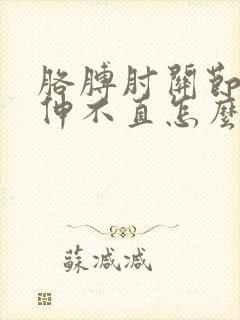 胳膊肘關節
伸不直怎麼
蘇减减